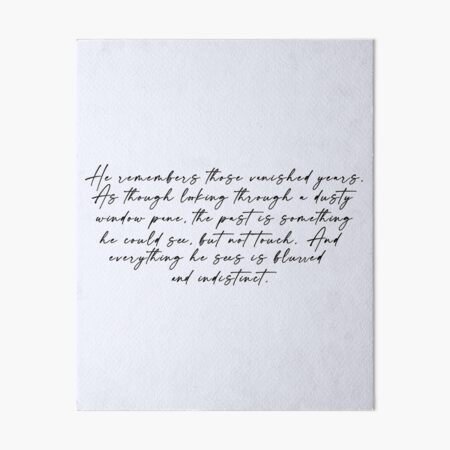 He remembers those vanished years.
As though looking through a dusty
window pane, the past is something
he could see, but not touch. And
everything he sees is blurred
and indistinct.